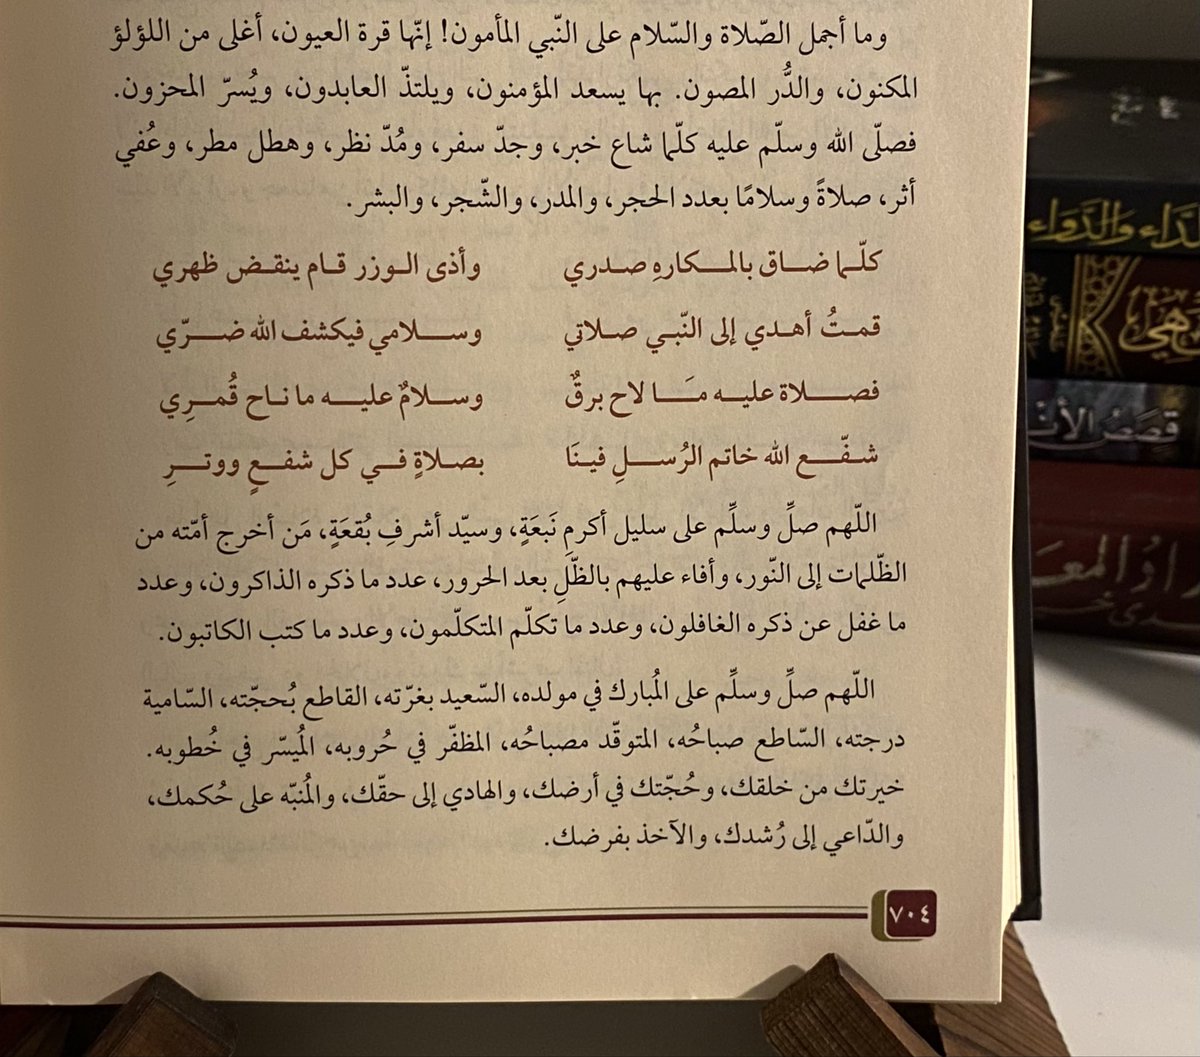 وما أجمل الصّلاة والسّلام على النّبي المأمون! إنّها قرة العيون، أغلى من اللؤلؤ
المكنون، والدُّر المصون. بها يسعد المؤمنون، ويلتذّ العابدون، ويُسرّ المحزون.
فصلّى الله وسلّم عليه كلّما شاع خبر، وجدّ سفر، ومُدّ نظر، وهطل مطر، وعُفي
أثر، صلاةً وسلامًا بعدد الحجر، والمدر، والشّجر، والبشر.
كلّما ضاق بالمكارهِ صدري وأذى الوزر قام ينقض ظهري
قمتُ أهدي إلى النّبي صلاتي وسلامي فيكشف الله ضرّي
فصلاة عليه مَا لاح برقٌ وسلامٌ عليه ما ناح قُمرِي
شفّع الله خاتم الرُسلِ فينَا بصلاةٍ في كل شفعٍ ووترِ
اللّهم صلِّ وسلِّم على سليل أكرمِ نَبعَةٍ، وسيّد أشرفِ بُقعَةٍ، مَن أخرج أمّته من
الظّلمات إلى النّور، وأفاء عليهم بالظّلِ بعد الحرور، عدد ما ذكره الذاكرون، وعدد
ما غفل عن ذكره الغافلون، وعدد ما تكلّم المتكلّمون، وعدد ما كتب الكاتبون.
اللّهم صلِّ وسلِّم على المُبارك في مولده، السّعيد بغرّته، القاطع بُحجّته، السّامية
درجته، السّاطع صباحُه، المتوقّد مصباحُه، المظفّر في حُروبه، المُيسّر في خُطوبه.
خيرتك من خلقك، وحُجّتك في أرضك، والهادي إلى حقّك، والمُنبّه على حُكمك،
والدّاعي إلى رُشدك، والآخذ بفرضك.
٧٠٤
الداء والدواء
قصص الأن